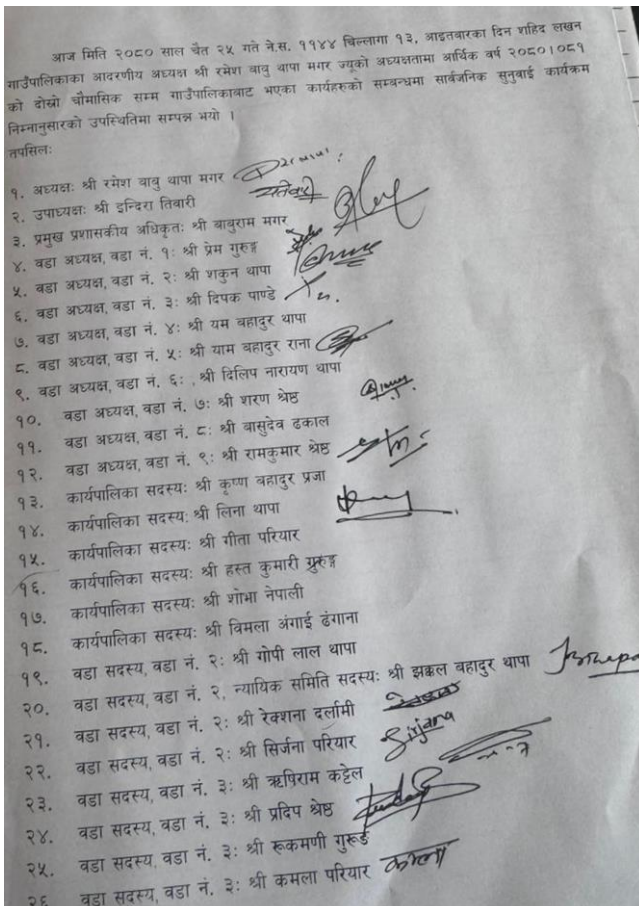 आज मिति २०८० साल चैत २५ गते ने.स. ११४४ चिल्लागा १३, आइतबारका दिन शहिद लखन
गाउँपालिकाका आदरणीय अध्यक्ष श्री रमेश बाबु थापा मगर ज्यूको अध्यक्षतामा आर्थिक वर्ष २०८०।०८१
को दोस्रो चौमासिक सम्म गाउँपालिकाबाट भएका कार्यहरुको सम्बन्धमा सार्वजनिक सुनुवाई कार्यक्रम
निम्नानुसारको उपस्थितिमा सम्पन्न भयो ।
तपसिलः
१. अध्यक्षः श्री रमेश बाबु थापा मगर
२. उपाध्यक्षः श्री इन्दिरा तिवारी
३. प्रमुख प्रशासकीय अधिकृतः श्री बाबुराम मगर
४. वडा अध्यक्ष, वडा नं. १ः श्री प्रेम गुरुङ्ग
५. वडा अध्यक्ष, वडा नं. २ः श्री शकुन थापा
६. वडा अध्यक्ष, वडा नं. ३ः श्री दिपक पाण्डे
७. वडा अध्यक्ष, वडा नं. ४ः श्री यम बहादुर थापा
८. वडा अध्यक्ष, वडा नं. ५ः श्री याम बहादुर राना
९. वडा अध्यक्ष, वडा नं. ६ः , श्री दिलिप नारायण थापा
१०. वडा अध्यक्ष, वडा नं. ७ः श्री शरण श्रेष्ठ
११. वडा अध्यक्ष, वडा नं. ८ः श्री बासुदेव ढकाल
१२. वडा अध्यक्ष, वडा नं. ९ः श्री रामकुमार श्रेष्ठ
१३. कार्यपालिका सदस्यः श्री कृष्ण बहादुर प्रजा
१४. कार्यपालिका सदस्यः श्री लिना थापा
१५. कार्यपालिका सदस्यः श्री गीता परियार
१६. कार्यपालिका सदस्यः श्री हस्त कुमारी गुरुङ्ग
१७. कार्यपालिका सदस्यः श्री शोभा नेपाली
१८. कार्यपालिका सदस्यः श्री विमला अंगाई ढंगाना
१९. वडा सदस्य, वडा नं. २ः श्री गोपी लाल थापा
२०. वडा सदस्य, वडा नं. २, न्यायिक समिति सदस्यः श्री झक्कल बहादुर थापा
२१. वडा सदस्य, वडा नं. २ः श्री रेक्शना दर्लामी
२२. वडा सदस्य, वडा नं. २ः श्री सिर्जना परियार Sirjana
२३. वडा सदस्य, वडा नं. ३ः श्री ऋषिराम कट्टेल
२४. वडा सदस्य, वडा नं. ३ः श्री प्रदिप श्रेष्ठ
२५. वडा सदस्य, वडा नं. ३ः श्री रूकमणी गुरूङ
२६ वडा सदस्य, वडा नं. ३ः श्री कमला परियार कमला